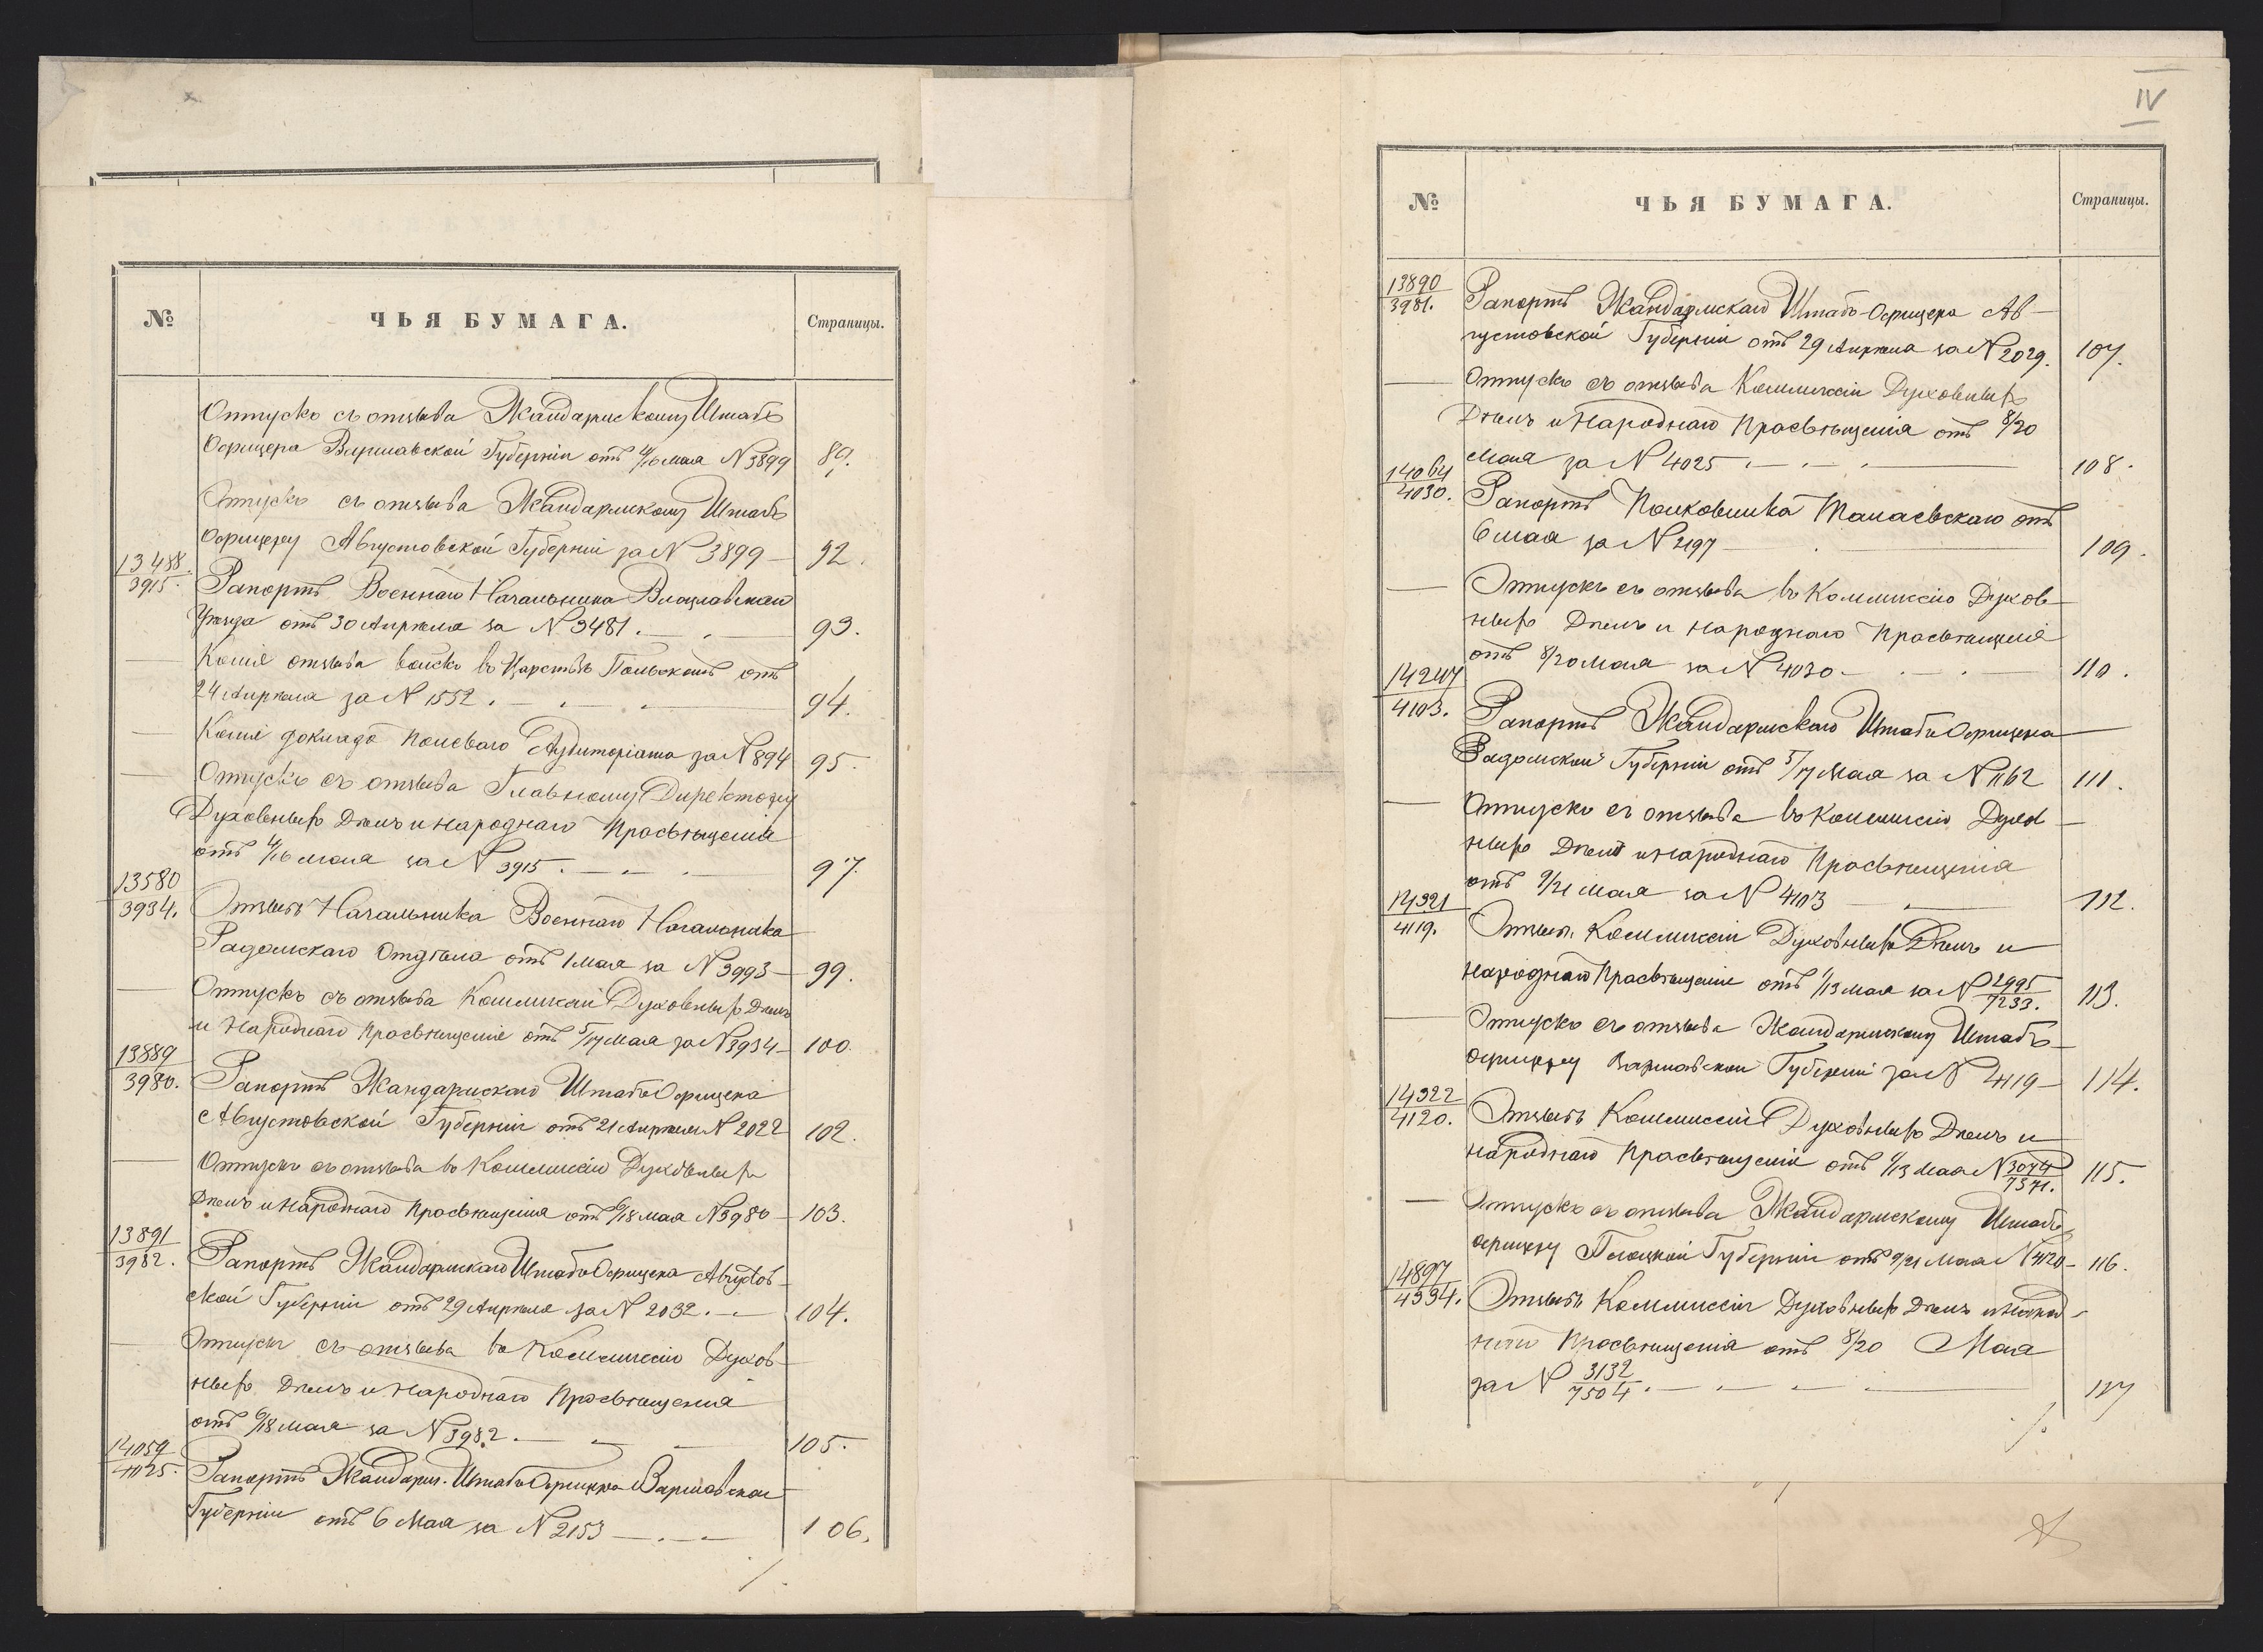 № ЧЬЯ БУМАГА. Страницы.
Отпускъ съ отзыва Жандармскому Штабъ
Офицера Варшавской Губерніи отъ 4/16 мая № 3899 89.
Отпускъ съ отзыва Жандармскому Штабъ
Офицеру Августовской Губерніи за № 3899 — 92.
13488.
3915. Рапортъ Военнаго Начальника Влоцлавскаго
Уѣзда отъ 30 Апрѣля за № 3481. — 93.
— Копія отзыва войскъ въ Царствѣ Польскомъ отъ
24 Апрѣля за № 1552. — 94.
— Копія доклада Полеваго Аудиторіата за № 894 95.
— Отпускъ съ отзыва Главному Директору
Духовныхъ Дѣлъ и Народнаго Просвѣщенія
отъ 4/16 мая за № 3915. — 97.
13580
3934. Отзывъ Начальника Военнаго Начальника
Радомскаго Отдѣла отъ 1 мая за № 3993 — 99.
— Отпускъ съ отзыва Коммисіи Духовныхъ Дѣлъ
и Народнаго Просвѣщенія отъ 5/17 мая за № 3934 — 100.
13889
3980. Рапортъ Жандармскаго Штабъ Офицера
Августовской Губерніи отъ 21 Апрѣля № 2022 102.
— Отпускъ съ отзыва въ Коммисію Духовныхъ
Дѣлъ и Народнаго Просвѣщенія отъ 6/18 мая № 3980 — 103.
13891
3982. Рапортъ Жандармскаго Штабъ Офицера Августов-
ской Губерніи отъ 29 Апрѣля за № 2032. — 104.
— Отпускъ съ отзыва въ Коммиссію Духов-
ныхъ Дѣлъ и Народнаго Просвѣщенія
отъ 6/18 мая за № 3982. — 105.
14059
4025. Рапортъ Жандарм. Штабъ Офицера Варшавской
Губерніи отъ 6 Мая за № 2153 — 106.
IV
№ ЧЬЯ БУМАГА. Страницы.
13890
3981. Рапортъ Жандармскаго Штабъ-Офицера Ав-
густовской Губерніи отъ 29 Апрѣля за № 2029. 107.
— Отпускъ съ отзыва Коммиссіи Духовныхъ
Дѣлъ и Народнаго Просвѣщенія отъ 8/20
Мая за № 4025. — 108.
14064
4030. Рапортъ Полковника отъ
6 мая за № 2197 — 109.
— Отпускъ съ отзыва въ Коммиссію Духов-
ныхъ Дѣлъ и Народнаго Просвѣщенія
отъ 8/20 Мая за № 4030. — 110.
14247
4103. Рапортъ Жандармскаго Штабъ Офицера
Радомской Губерніи отъ 5/17 Мая за № 1162 111.
— Отпускъ съ отзыва въ Коммисію Духов-
ныхъ Дѣлъ и Народнаго Просвѣщенія
отъ 9/21 Мая за № 4103 — 112.
14321
4119. Отзывъ Коммиссіи Духовныхъ Дѣлъ и
Народнаго Просвѣщенія отъ 1/13 мая за № 2995/7233. 113.
— Отпускъ съ отзыва Жандармскому Штабъ-
офицеру Варшавской Губерніи за № 4119 — 114.
14322
4120. Отзывъ Коммиссіи Духовныхъ Дѣлъ и
Народнаго Просвѣщенія отъ 1/13 Мая № 3074/7371. 115.
— Отпускъ съ отзыва Жандармскому Штабъ
офицеру Плоцкой Губерніи отъ 9/21 Мая № 4120 — 116.
14897
4334. Отзывъ Коммиссіи Духовныхъ Дѣлъ и Народ-
наго Просвѣщенія отъ 8/20 Мая
за № 3132/7504. — 117